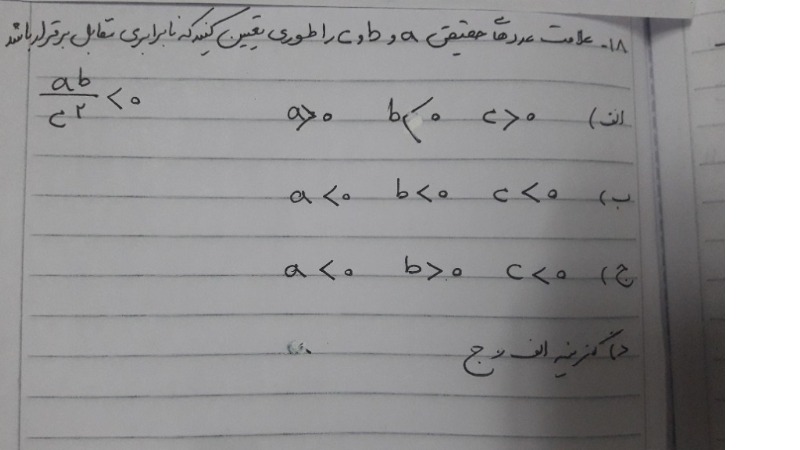 ۱۸- علامت عددهای حقیقی a و b و c را طوری تعیین کنید که نابرابری مقابل برقرار باشد
ab/c² < ۰
الف) a>۰ b<۰ c>۰
ب) a<۰ b<۰ c<۰
ج) a<۰ b>۰ c<۰
د) گزینه الف و ج